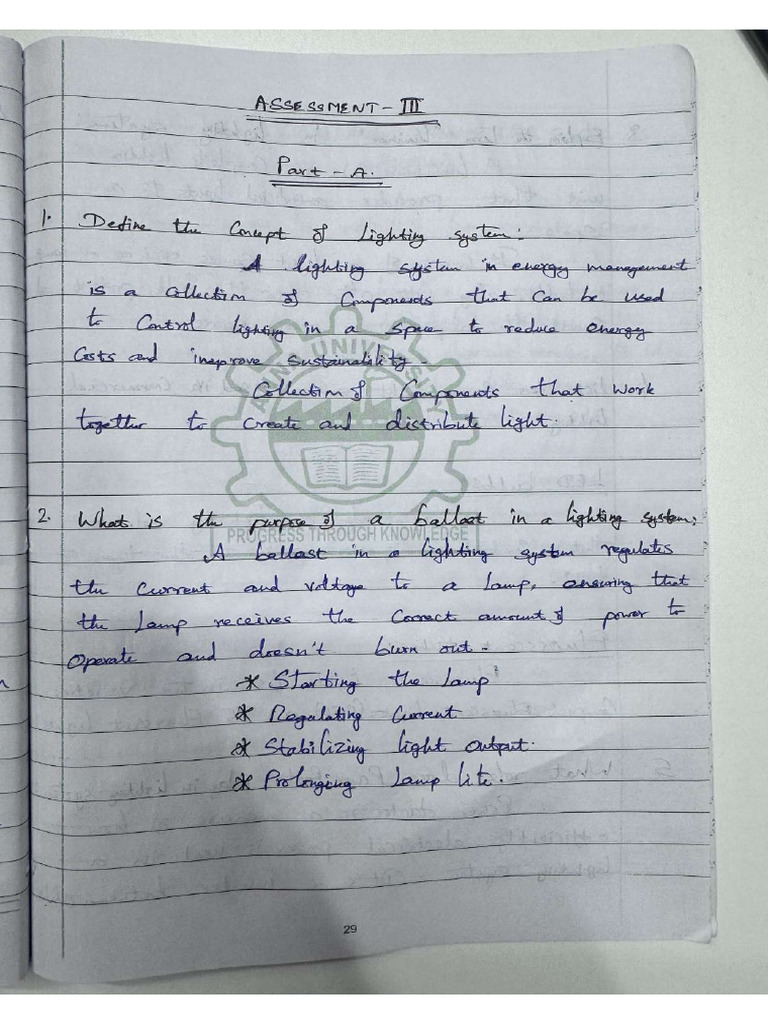 ASSESSMENT - III
Part - A.
1. Define the Concept of Lighting system:
A lighting system in energy management
is a collection of Components that can be used
to control lighting in a space to reduce energy
Costs and ineprove sustainability.
Collection of Components that work
together to create and distribute light.
2. What is the purpose of a ballast in a lighting system:
PROGRESS THROUGH KNOWLEDGE
A ballast in a lighting system regulates
the current and voltage to a Lamp, ensuring that
the Lamp receives the Correct amount of power to
Operate and doesn't burn out.
* Starting the Lamp
* Regulating Current
* Stabilizing light output.
* Prolonging Lamp lite.
29